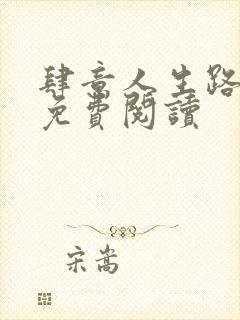 肆意人生路
免費閱讀
宋嵩